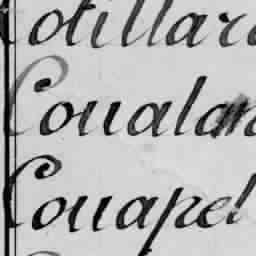 Cotillard
Coualan
Couapel